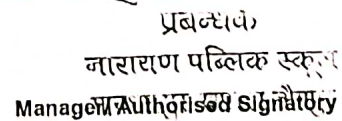 प्रबन्धक
नारायण पब्लिक स्कूल
Manager/Authorised Signatory